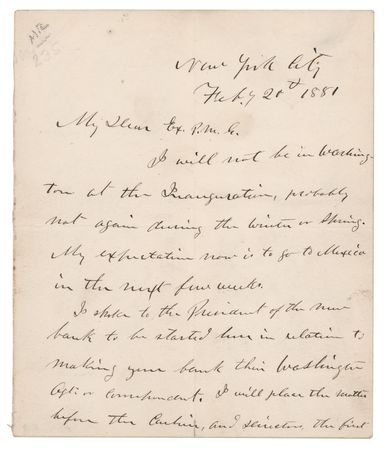 235
New York City
Feb.y 20th 1881
My Dear Ex. P.M.G.
I will not be in Washing-
ton at the Inauguration, probably
not again during the winter or Spring.
My expectation now is to go to Mexico
in the next few weeks.
I spoke to the President of the new
bank to be started here in relation to
making your bank their Washington
Agt. or correspondent. I will place the matter
before the Cashier, and directors, the first